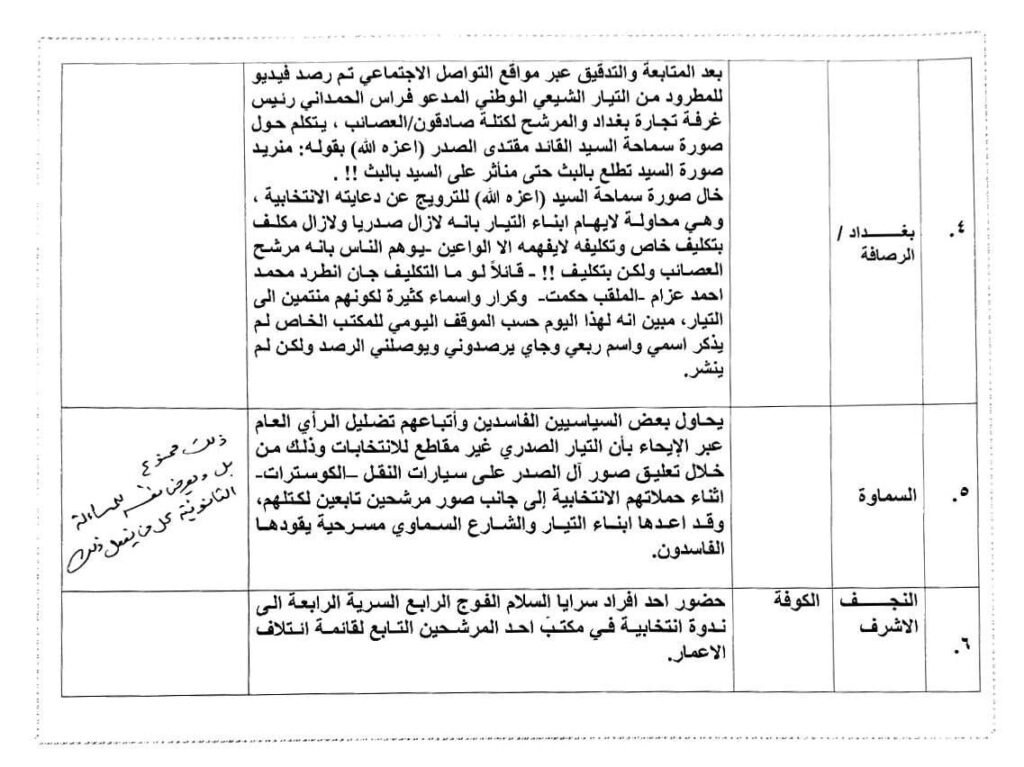 .٤
بغـــداد /
الرصافة
بعد المتابعة والتدقيق عبر مواقع التواصل الاجتماعي تم رصد فيديو
للمطرود من التيار الشيعي الوطني المدعو فراس الحمداني رئيس
غرفة تجارة بغداد والمرشح لكتلة صادقون/العصائب ، يتكلم حول
صورة سماحة السيد القائد مقتدى الصدر (اعزه الله) بقوله: منريد
صورة السيد تطلع بالبث حتى منأثر على السيد بالبث !! .
خال صورة سماحة السيد (اعزه الله) للترويج عن دعايته الانتخابية ،
وهي محاولة لايهام ابناء التيار بانه لازال صدريا ولازال مكلف
بتكليف خاص وتكليفه لايفهمه الا الواعين -يوهم الناس بانه مرشح
العصائب ولكن بتكليف !! - قائلاً لو ما التكليف جان انطرد محمد
احمد عزام -الملقب حكمت- وكرار واسماء كثيرة لكونهم منتمين الى
التيار، مبين انه لهذا اليوم حسب الموقف اليومي للمكتب الخاص لم
يذكر اسمي واسم ربعي وجاي يرصدوني ويوصلني الرصد ولكن لم
ينشر.
.٥
السماوة
يحاول بعض السياسيين الفاسدين وأتباعهم تضليل الرأي العام
عبر الإيحاء بأن التيار الصدري غير مقاطع للانتخابات وذلك من
خلال تعليق صور آل الصدر على سيارات النقل –الكوسترات-
اثناء حملاتهم الانتخابية إلى جانب صور مرشحين تابعين لكتلهم،
وقد اعدها ابناء التيار والشارع السماوي مسرحية يقودها
الفاسدون.
ذلك ممنوع
بل ويعرض نفسه للمساءلة
القانونية كل من يفعل ذلك
.٦
النجـــف
الاشرف
الكوفة
حضور احد افراد سرايا السلام الفوج الرابع السرية الرابعة الى
ندوة انتخابية في مكتب احد المرشحين التابع لقائمة ائتلاف
الاعمار.